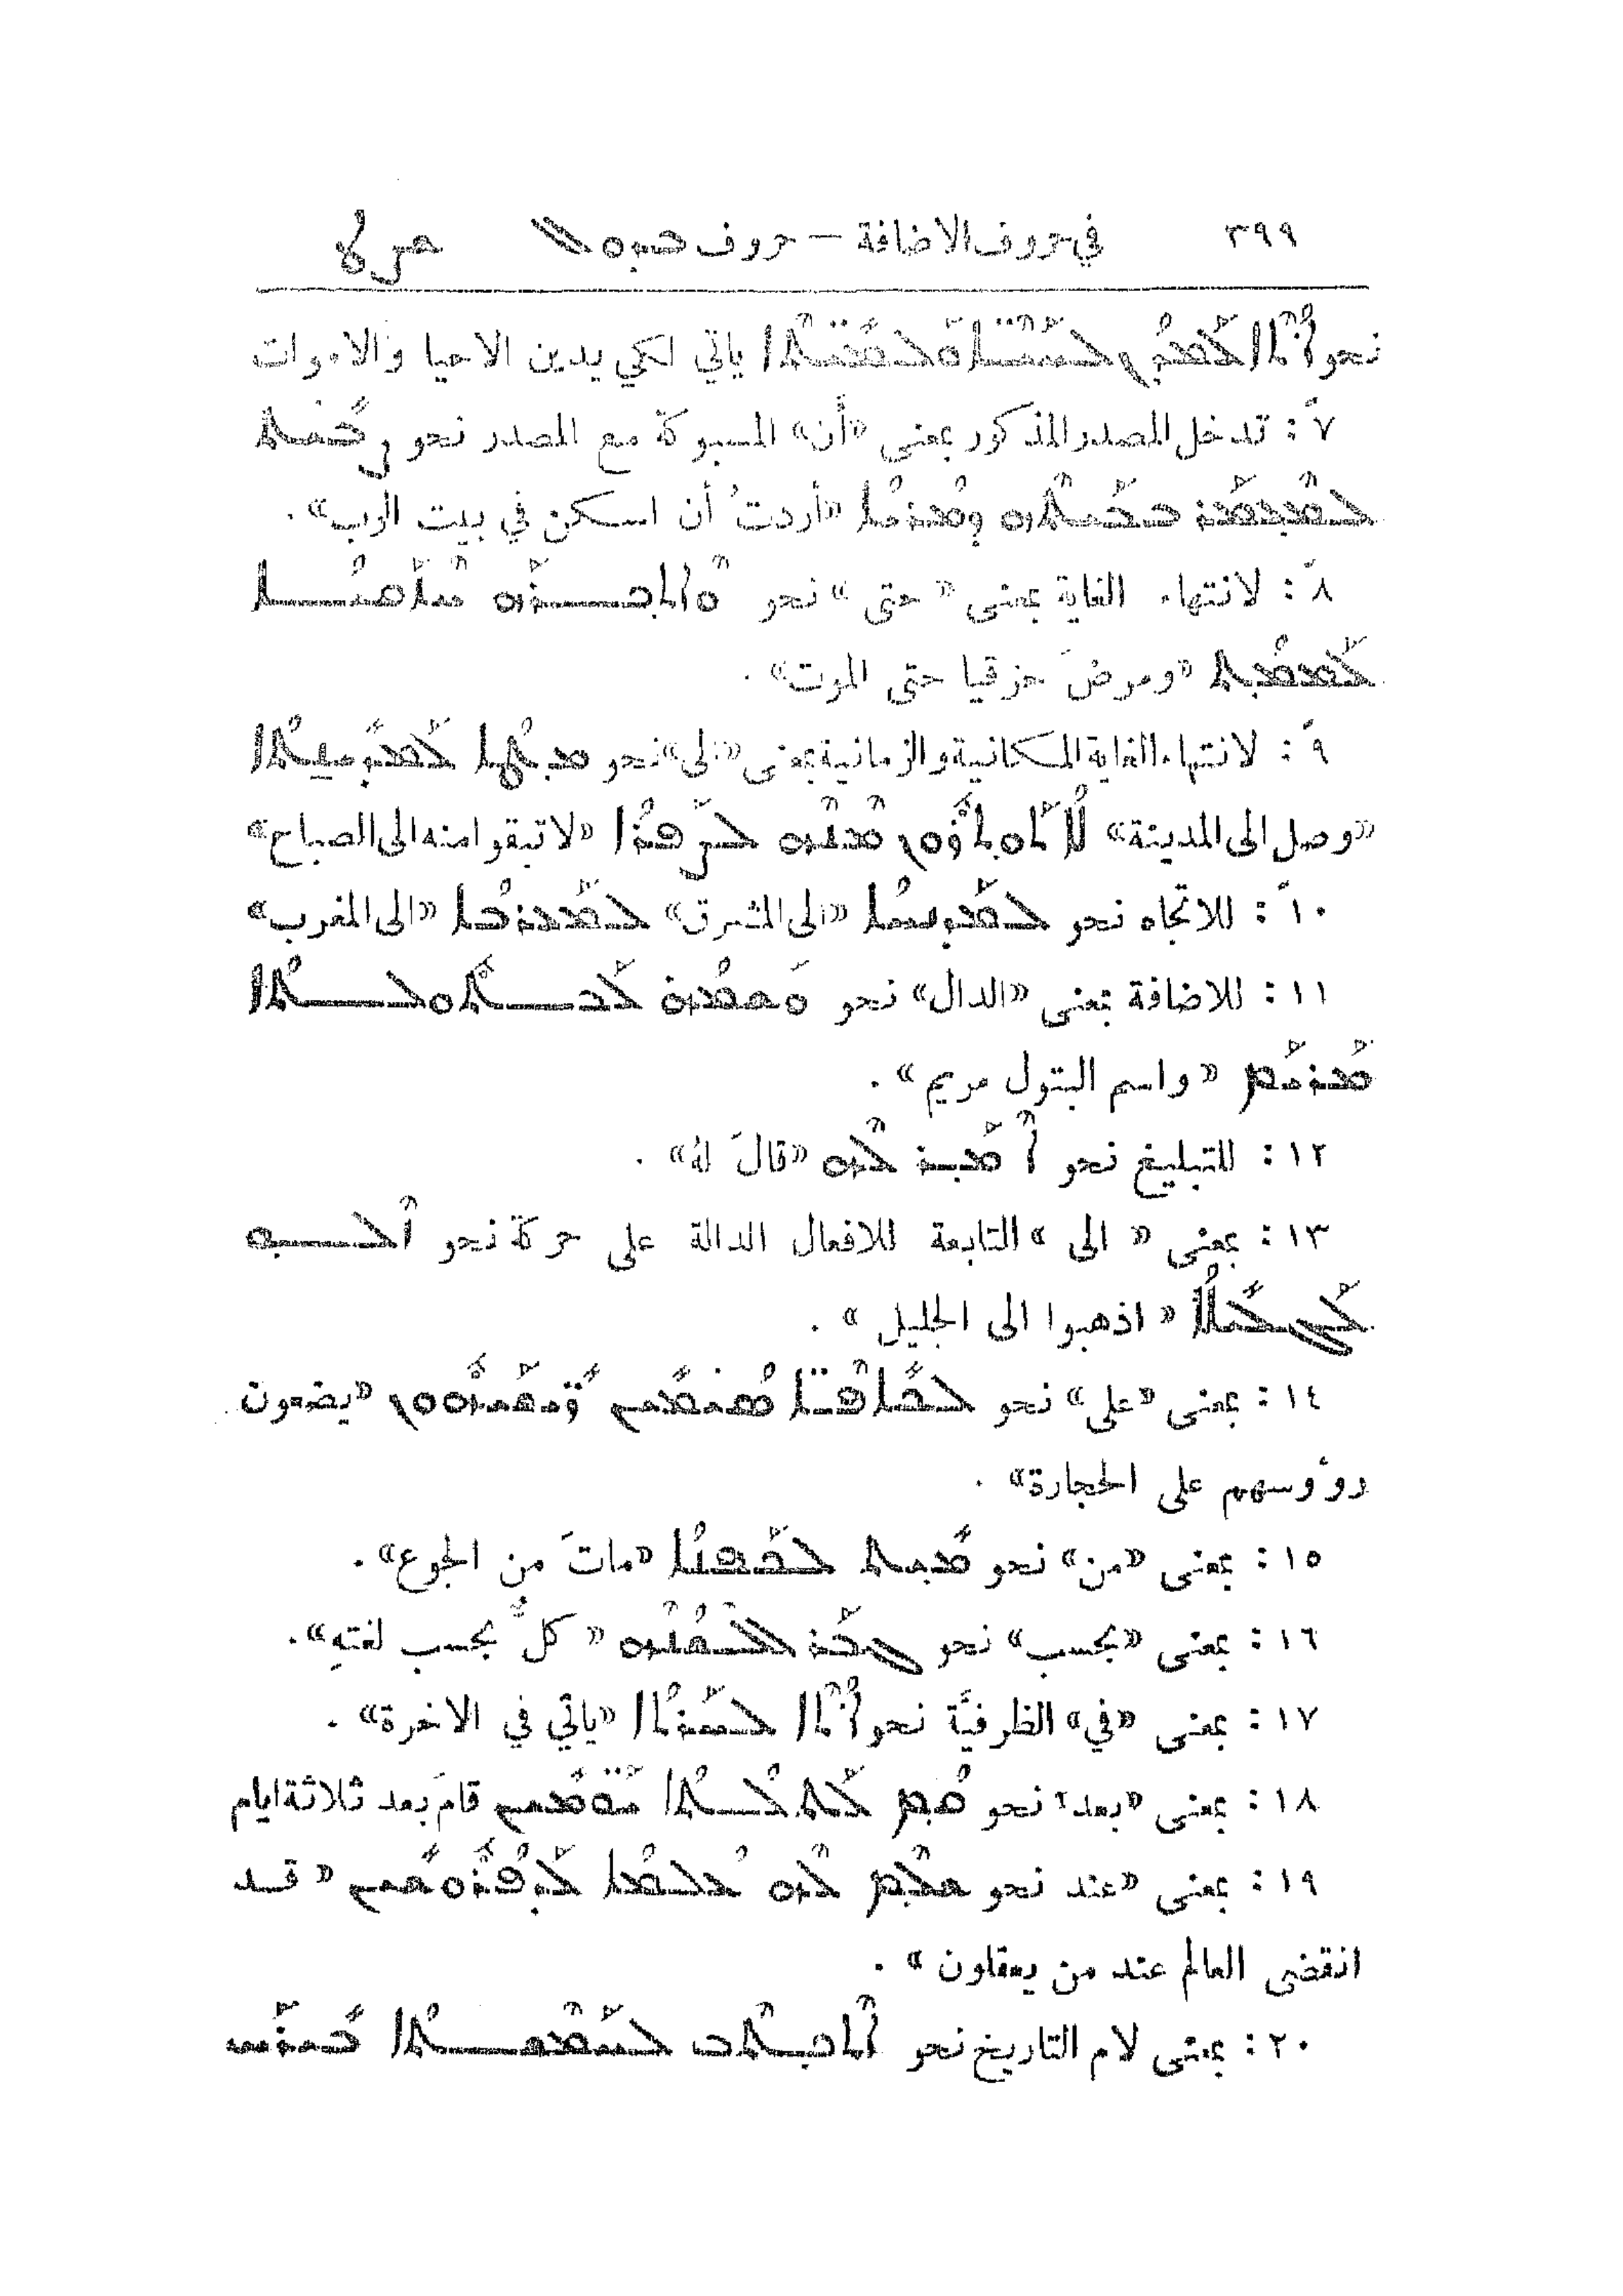 ٣٩٩ في حروف الاضافة — حروف ܒܕܘܠ
نحو ܐܬܐ ܠܡܕܢ ܠܚܝ̈ܐ ܘܠܡܝ̈ܬܐ ياتي لكي يدين الاحيا والاموات
٧ً: تدخل المصدر المذكور بمعنى «أن» المسبوكة مع المصدر نحو ܨܒܝܬ
ܠܡܥܡܪ ܒܒܝܬܗ ܕܡܪܝܐ «أردتُ أن اسكن في بيت الرب».
٨ً: لانتهاء الغاية بمعنى «حتى» نحو ܘܐܬܟܪܗ ܚܙܩܝܐ
ܠܡܡܬ «ومرضَ حزقيا حتى الموت».
٩ً: لانتهاء الغاية المكانية والزمانية بمعنى «الى» نحو ܡܛܐ ܠܡܕܝܢܬܐ
«وصل الى المدينة» ܠܐ ܬܘܬܪܘܢ ܡܢܗ ܠܨܦܪܐ «لا تبقوا منه الى الصباح»
١٠ً: للاتجاه نحو ܠܡܕܢܚܐ «الى المشرق» ܠܡܥܪܒܐ «الى المغرب»
١١: للاضافة بمعنى «الدال» نحو ܘܫܡܗ ܠܒܬܘܠܬܐ
ܡܪܝܡ «واسم البتول مريم».
١٢: للتبليغ نحو ܐܡܪ ܠܗ «قالَ لهُ».
١٣: بمعنى «الى» التابعة للافعال الدالة على حركة نحو ܙܠܘ
ܠܓܠܝܠܐ «اذهبوا الى الجليل».
١٤: بمعنى «على» نحو ܠܟܐܦ̈ܐ ܣܝܡܝܢ ܪ̈ܝܫܝܗܘܢ «يضعون
روٴوسهم على الحجارة».
١٥: بمعنى «من» نحو ܡܝܬ ܠܟܦܢܐ «ماتَ من الجوع».
١٦: بمعنى «بحسب» نحو ܓܒܪ ܠܠܫܢܗ «كلٌّ بحسب لغتهِ».
١٧: بمعنى «في» الظرفيَّة نحو ܐܬܐ ܠܚܪܬܐ «ياتي في الاخرة».
١٨: بمعنى «بعد» نحو ܩܡ ܠܬܠܬܐ ܝܘ̈ܡܝܢ قامَ بعد ثلاثة ايام
١٩: بمعنى «عند نحو ܫܠܡ ܠܗ ܥܠܡܐ ܠܕܦܪܘܫܝܢ «قد
انقضى العالم عند من يعقلون».
٢٠: بمعنى لام التاريخ نحو ܐܬܟܬܒ ܠܚܡܫܬܐ ܒܝܪܚ